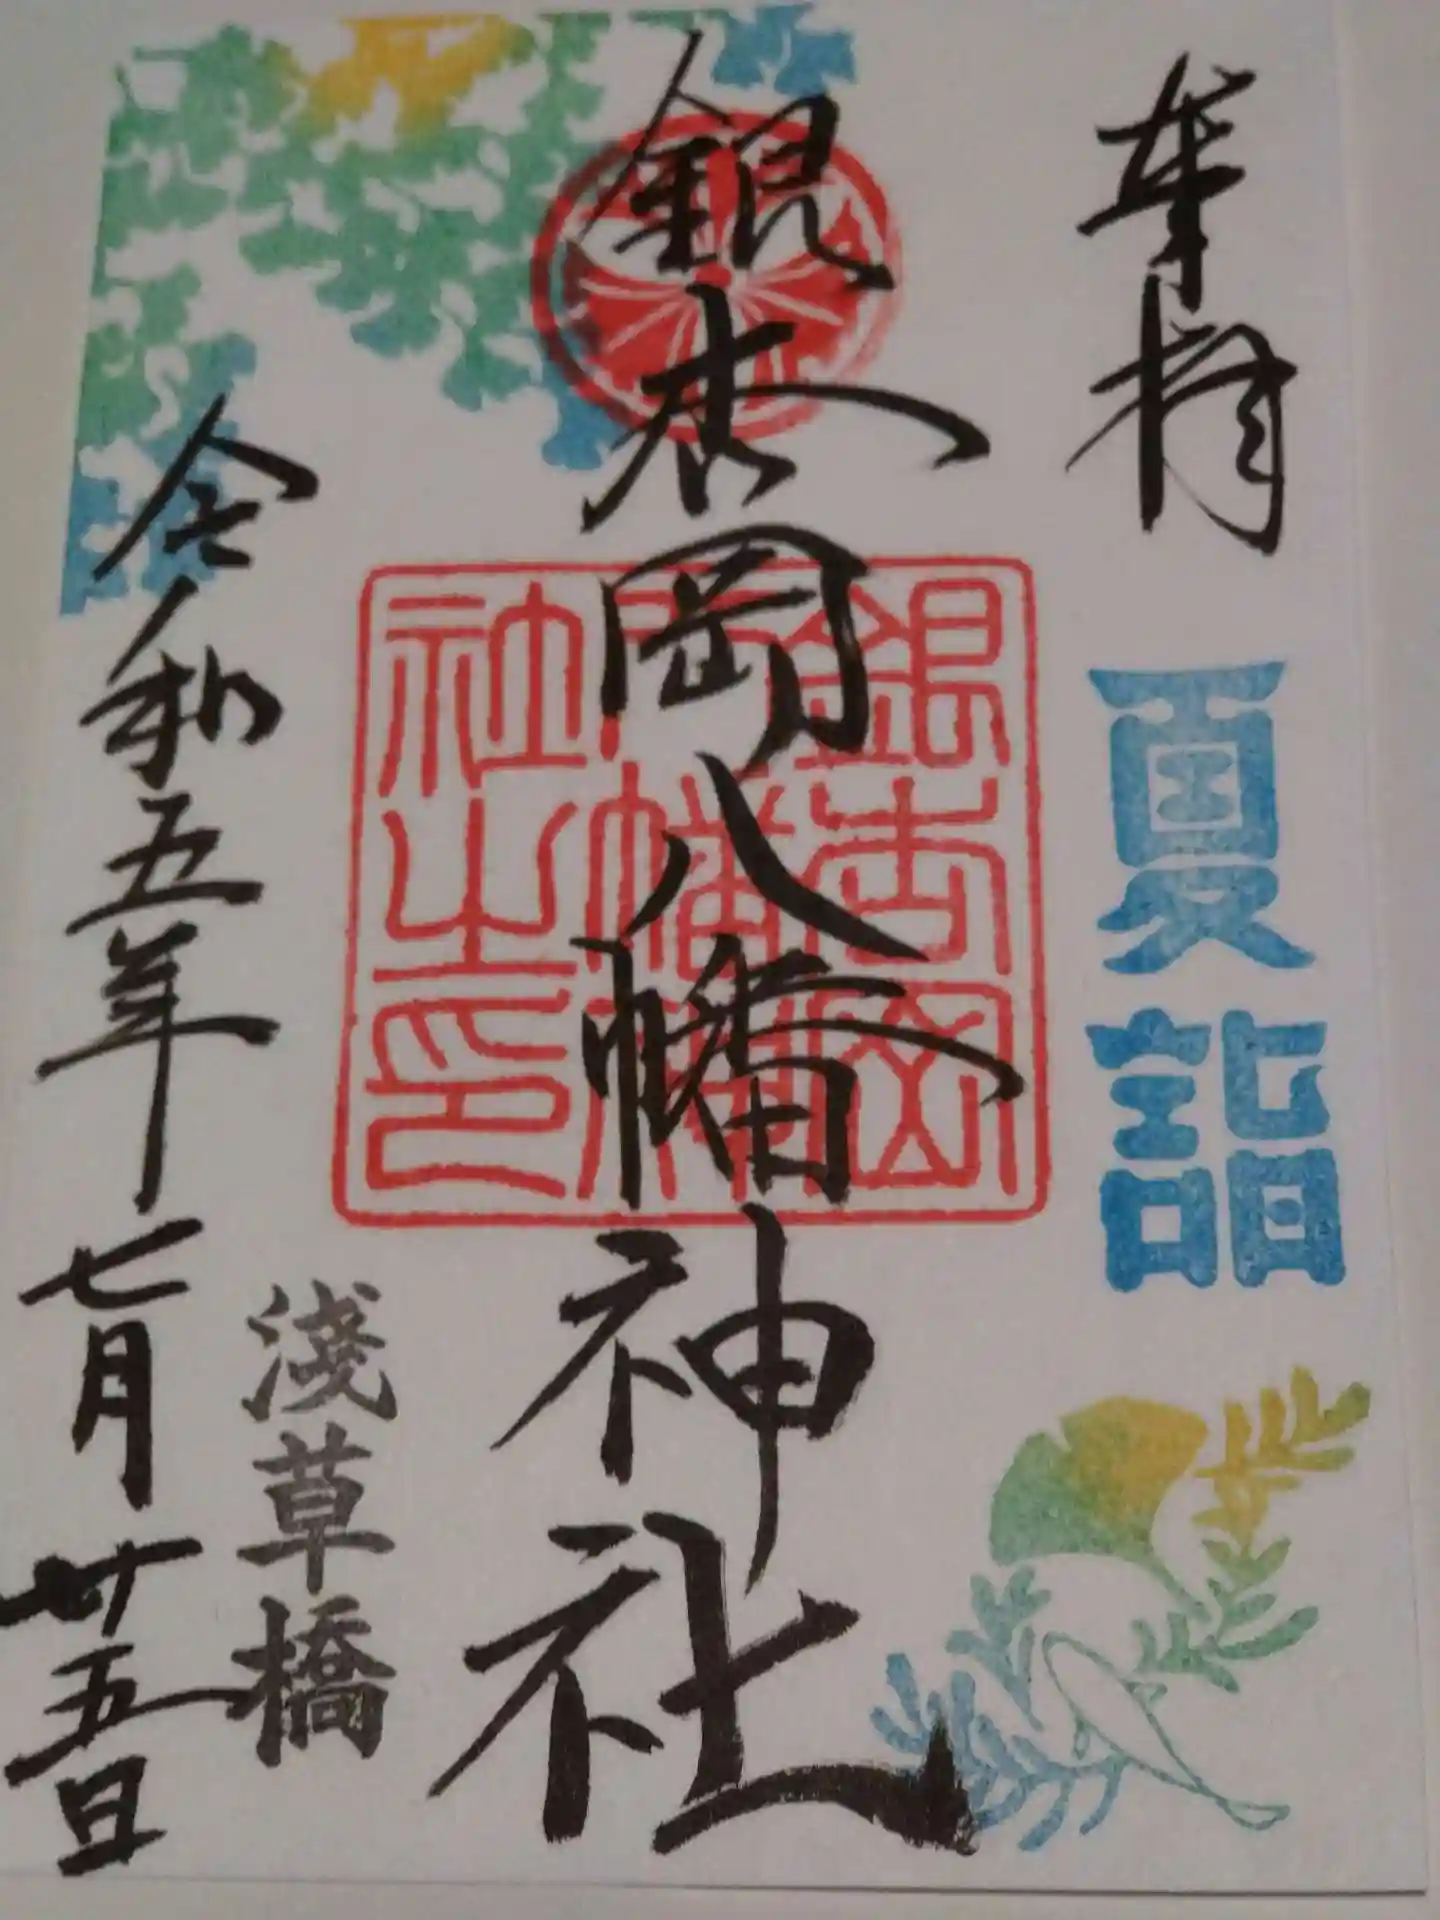 奉拝
夏詣
銀杏岡八幡神社
銀杏岡
八幡神
社之印
浅草橋
令和五年七月廿五日